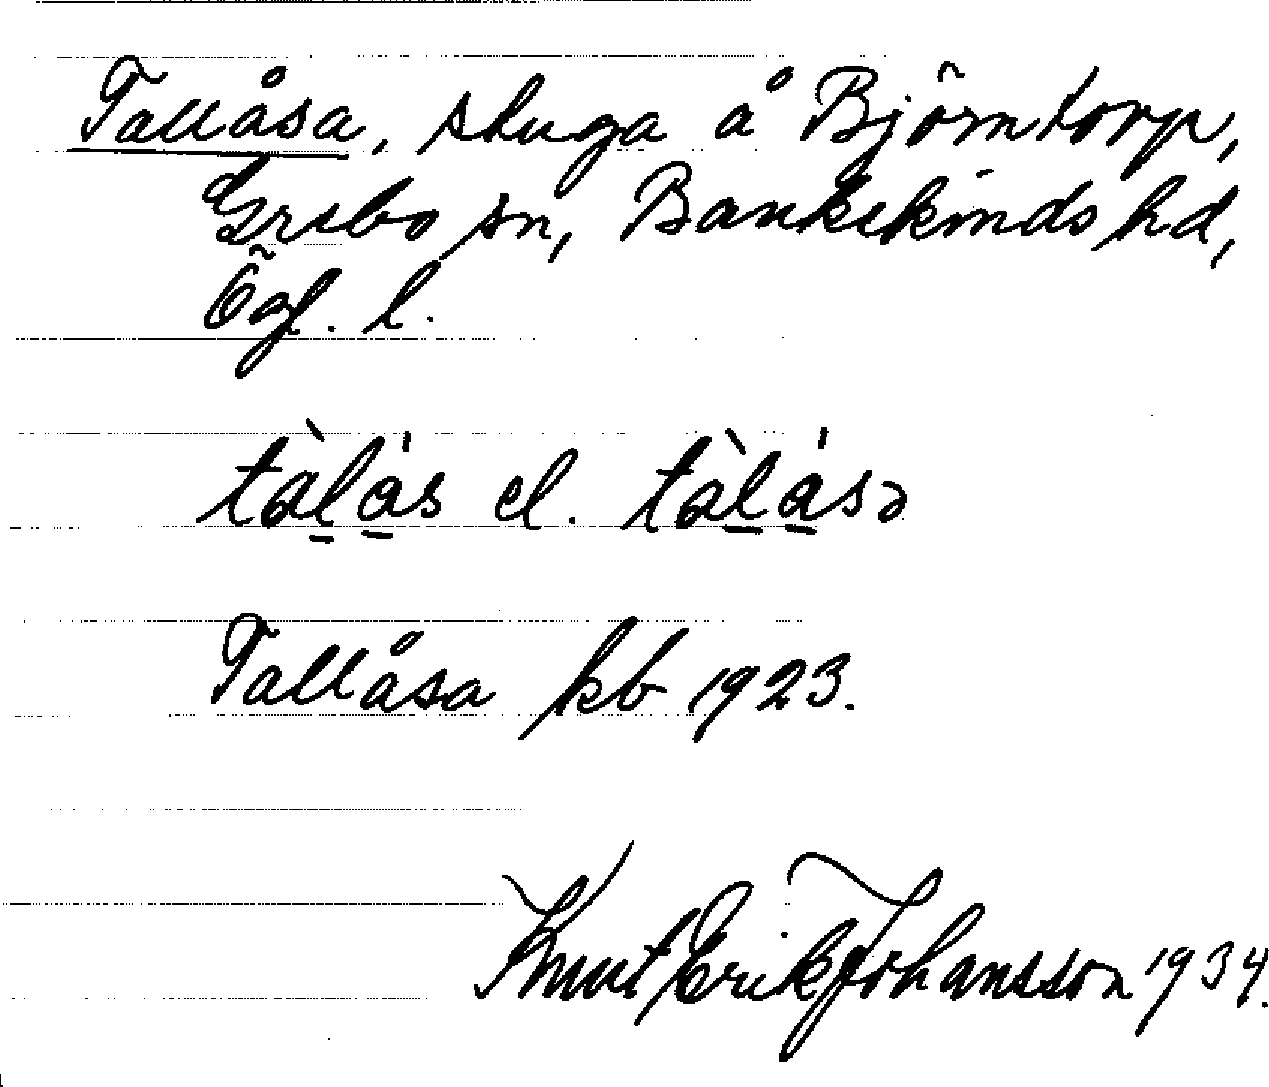 Tallåsa, stuga å Björntorp,
Grebo sn, Bankekinds hd,
Ög. l.
tàlás el. tàlásə
Tallåsa kb 1923.
Knut Erik Johansson 1934.